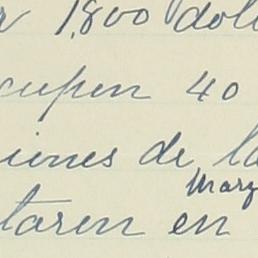 r 1,800 dol
cupen 40
iones de la
Marz
taren en